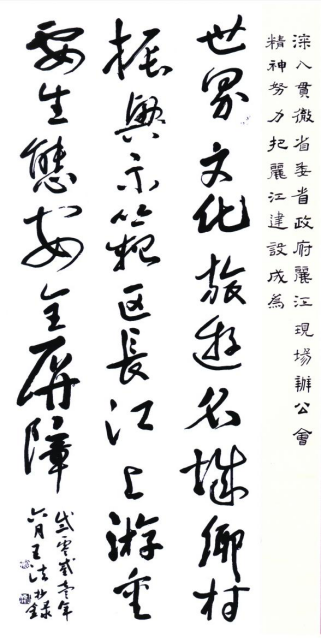 深入貫徹省委省政府麗江現場辦公會
精神努力把麗江建設成為
世界文化旅遊名城鄉村
振興示範区長江上游重
要生態安全屏障
貳零貳壹年
六月王法抄錄